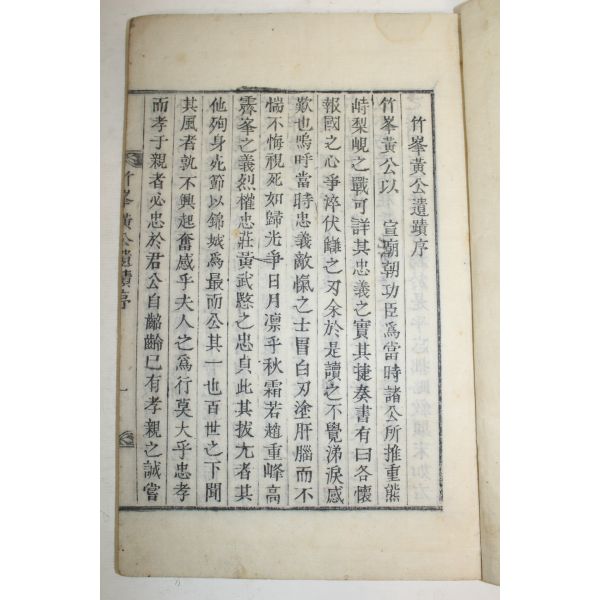 竹峯黃公遺蹟序
竹峯黃公以 宣廟朝功臣爲當時諸公所推重熊
峙梨峴之戰可詳其忠義之實其捷奏書有曰各懷
報國之心爭淬伏讎之刃余於是讀之不覺涕淚感
歎也嗚呼當時忠義敵愾之士冒白刃塗肝腦而不
惴不悔視死如歸光爭日月凛乎秋霜若趙重峰高
霽峯之義烈權忠莊黃武愍之忠貞此其拔尤者其
他殉身死節以錦城爲最而公其一也百世之下聞
其風者孰不興起奮感乎夫人之爲行莫大乎忠孝
而孝于親者必忠於君公自齠齡已有孝親之誠嘗
竹峯黃公遺蹟序 一